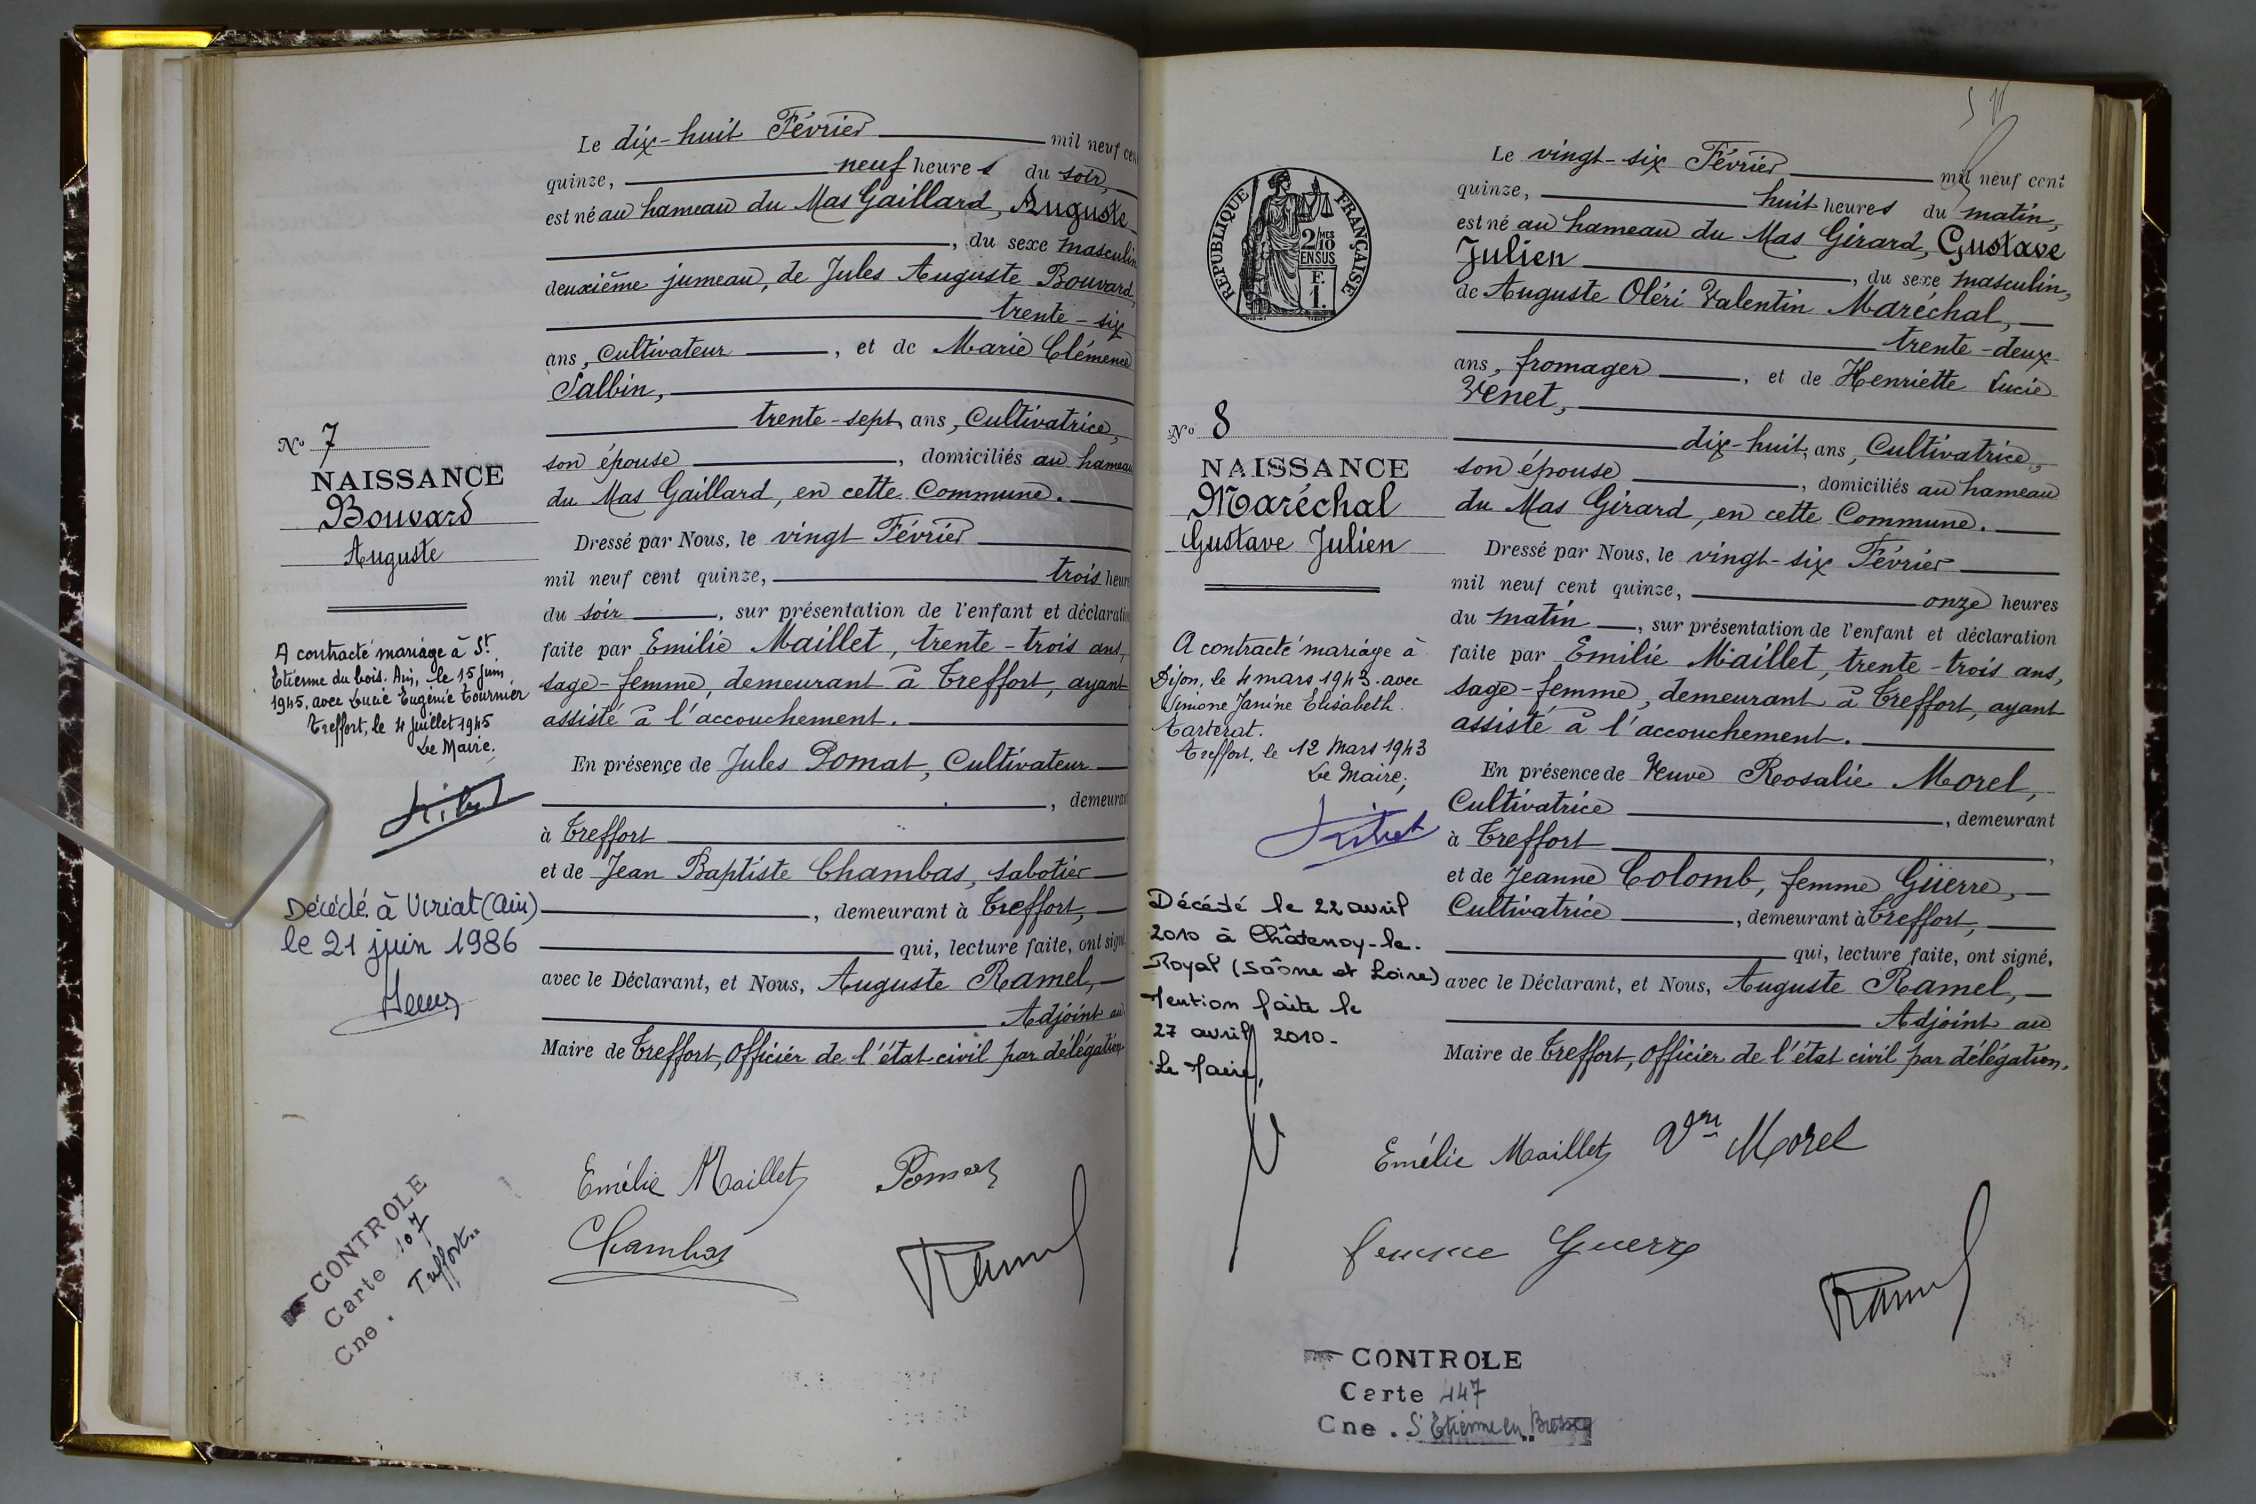 Le dix-huit Février mil neuf cent
quinze, neuf heures du soir,
est né au hameau du Mas Gaillard, Auguste
, du sexe masculin
deuxième jumeau, de Jules Auguste Bouvard,
trente-six
ans, Cultivateur , et de Marie Clémence
Salbin,
trente-sept ans, Cultivatrice,
son épouse , domiciliés au hameau
du Mas Gaillard, en cette Commune.
Dressé par Nous, le vingt Février
mil neuf cent quinze, trois heures
du soir , sur présentation de l'enfant et déclaration
faite par Emilie Maillet, trente-trois ans,
sage-femme, demeurant à Treffort, ayant
assisté à l'accouchement.
En présence de Jules Pomat, Cultivateur
, demeurant
à Treffort
et de Jean Baptiste Chambas, sabotier
, demeurant à Treffort,
qui, lecture faite, ont signé
avec le Déclarant, et Nous, Auguste Ramel,
Adjoint au
Maire de Treffort, Officier de l'état civil par délégation.
Nº 7
NAISSANCE
Bouvard
Auguste
A contracté mariage à St
Etienne du bois. Ain, le 15 Juin
1945, avec Lucie Eugénie Tournier
Treffort, le 4 Juillet 1945
Le Maire,
Décédé à Viriat (Ain)
le 21 juin 1986
Emélie Maillet
Chambas
Ramel
CONTROLE
Carte 107
Cne. Treffort
Le vingt-six Février mil neuf cent
quinze, huit heures du matin,
est né au hameau du Mas Girard, Gustave
Julien , du sexe masculin,
de Auguste Oléri Valentin Maréchal,
trente-deux
ans, fromager , et de Henriette Lucie
Venet,
dix-huit ans, Cultivatrice,
son épouse , domiciliés au hameau
du Mas Girard, en cette Commune.
Dressé par Nous, le vingt-six Février
mil neuf cent quinze, onze heures
du matin , sur présentation de l'enfant et déclaration
faite par Emilie Maillet, trente-trois ans,
sage-femme, demeurant à Treffort, ayant
assisté à l'accouchement.
En présence de Veuve Rosalie Morel,
Cultivatrice , demeurant
à Treffort ,
et de Jeanne Colomb, femme Güerre,
Cultivatrice , demeurant à Treffort,
qui, lecture faite, ont signé,
avec le Déclarant, et Nous, Auguste Ramel,
Adjoint au
Maire de Treffort, Officier de l'état civil par délégation.
RÉPUBLIQUE FRANÇAISE
2/10 MES
EN SUS
F.
1.
Nº 8
NAISSANCE
Maréchal
Gustave Julien
A contracté mariage à
Dijon, le 4 mars 1943. avec
Simone Janine Elisabeth
Tarterat.
Treffort, le 12 Mars 1943
Le Maire,
Décédé le 22 avril
2010 à Châtenoy-le-
Royal (Saône et Loire)
Mention faite le
27 avril 2010-
Le Maire,
Emélie Maillet Vve Morel
femme Guerre
Ramel
CONTROLE
Carte 447
Cne. St Etienne en Bresse